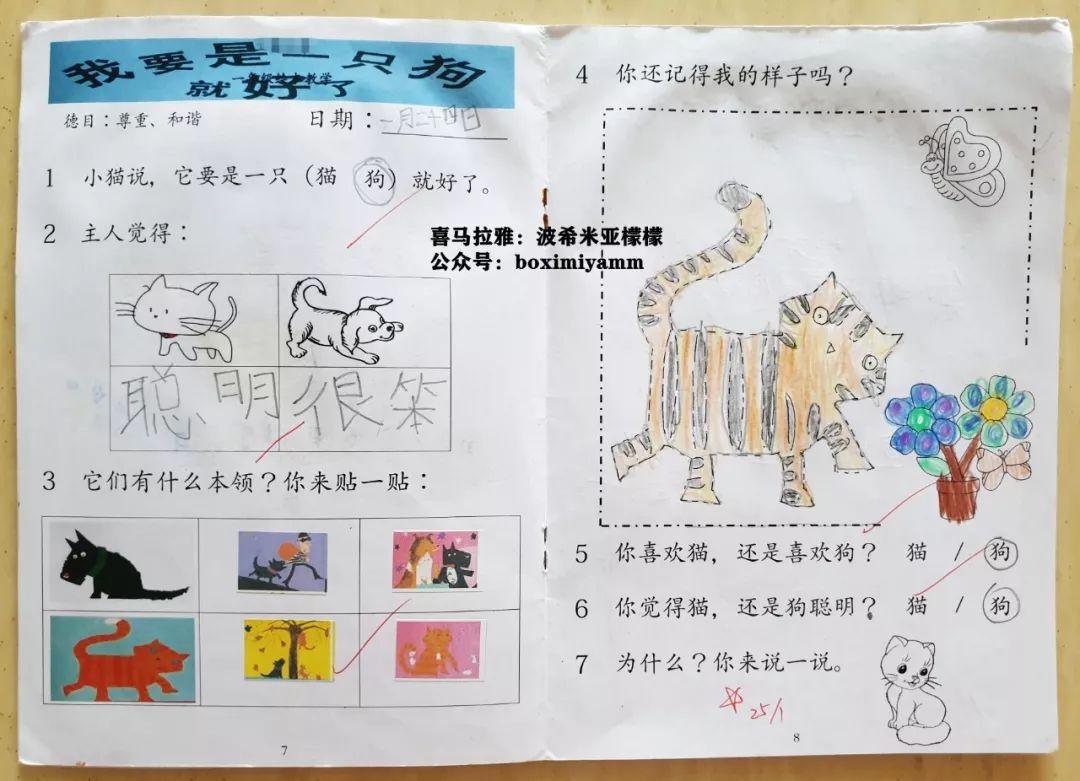 我要是一只狗
就好了
德目：尊重、和谐
日期：一月二十四日
1 小猫说，它要是一只（猫 狗）就好了。
2 主人觉得：
聪明 很笨
3 它们有什么本领？你来贴一贴：
7
喜马拉雅：波希米亚檬檬
公众号：boximiyamm
4 你还记得我的样子吗？
5 你喜欢猫，还是喜欢狗？ 猫 / 狗
6 你觉得猫，还是狗聪明？ 猫 / 狗
7 为什么？你来说一说。
25/1
8